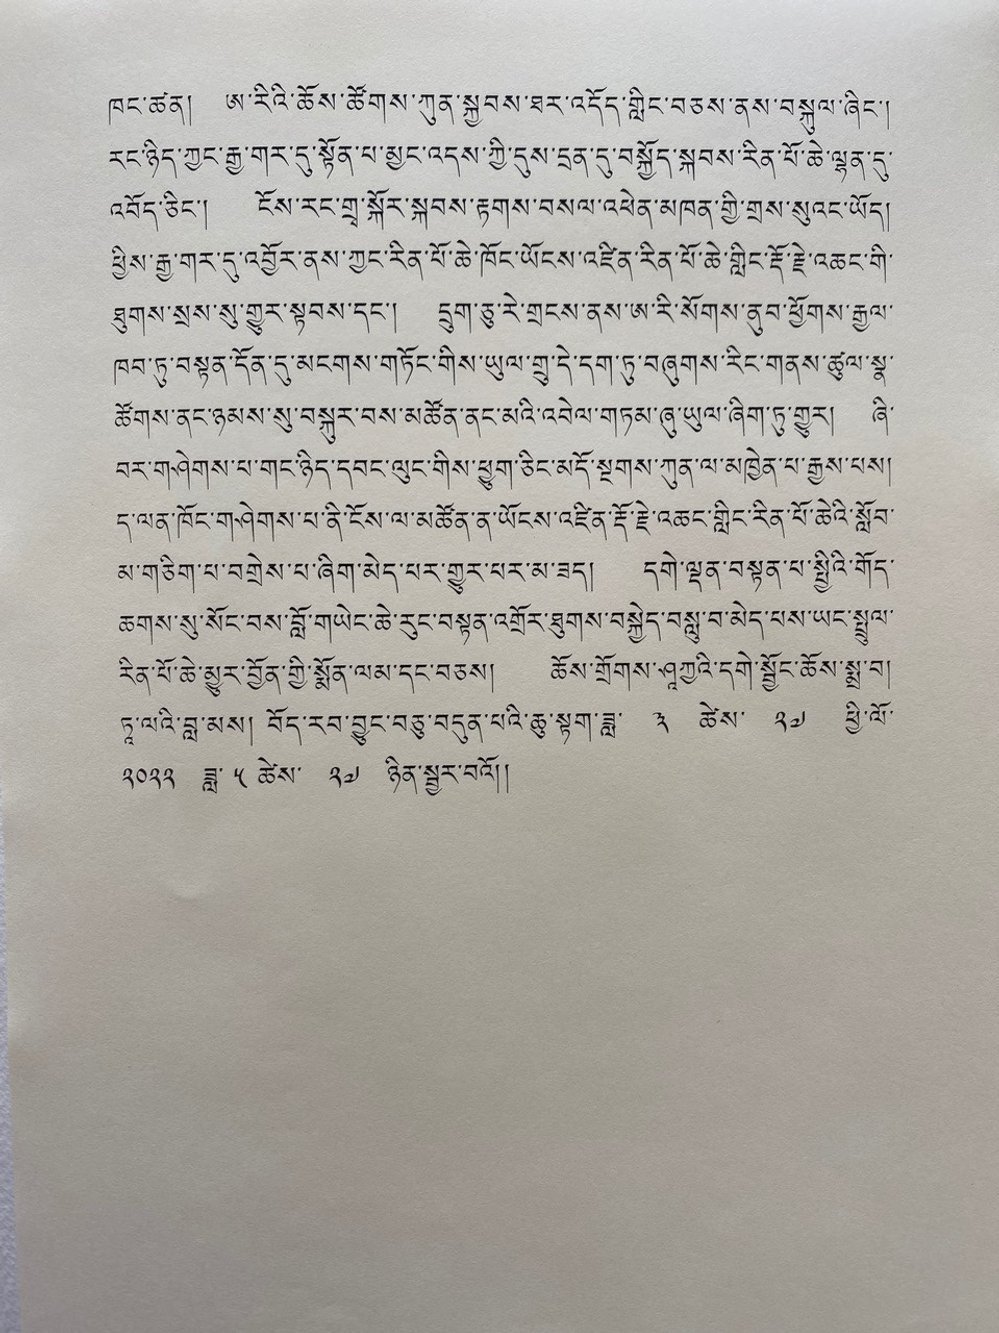 ཁང་ཚན།  ཨ་རིའི་ཆོས་ཚོགས་ཀུན་སྐྱབས་ཐར་འདོད་གླིང་བཅས་ནས་བསྐུལ་ཞིང་།
རང་ཉིད་ཀྱང་རྒྱ་གར་དུ་སྟོན་པ་མྱང་འདས་ཀྱི་དུས་དྲན་དུ་བསྐྱོད་སྐབས་རིན་པོ་ཆེ་ལྷན་དུ་
འབོད་ཅིང་།  ངོས་རང་གྲྭ་སྐོར་སྐབས་རྟགས་བསལ་འཕེན་མཁན་གྱི་གྲས་སུའང་ཡོད།
ཕྱིས་རྒྱ་གར་དུ་འབྱོར་ནས་ཀྱང་རིན་པོ་ཆེ་ཁོང་ཡོངས་འཛིན་རིན་པོ་ཆེ་གླིང་རྡོ་རྗེ་འཆང་གི་
ཐུགས་སྲས་སུ་གྱུར་སྟབས་དང་།  དྲུག་ཅུ་རེ་གྲངས་ནས་ཨ་རི་སོགས་ནུབ་ཕྱོགས་རྒྱལ་
ཁབ་ཏུ་བསྟན་དོན་དུ་མངགས་གཏོང་གིས་ཡུལ་གྲུ་དེ་དག་ཏུ་བཞུགས་རིང་གནས་ཚུལ་སྣ་
ཚོགས་ནང་ཉམས་སུ་བསྐུར་བས་མཚོན་ནང་མའི་འབེལ་གཏམ་ཞུ་ཡུལ་ཞིག་ཏུ་གྱུར།  ཞི་
བར་གཤེགས་པ་གང་ཉིད་དབང་ལུང་གིས་ཕྱུག་ཅིང་མདོ་སྔགས་ཀུན་ལ་མཁྱེན་པ་རྒྱས་པས།
ད་ལན་ཁོང་གཤེགས་པ་ནི་ངོས་ལ་མཚོན་ན་ཡོངས་འཛིན་རྡོ་རྗེ་འཆང་གླིང་རིན་པོ་ཆེའི་སློབ་
མ་གཅིག་པ་བགྲེས་པ་ཞིག་མེད་པར་གྱུར་པར་མ་ཟད།  དགེ་ལྡན་བསྟན་པ་སྤྱིའི་གོད་
ཆགས་སུ་སོང་བས་བློ་གཡེང་ཆེ་རུང་བསྟན་འགྲོར་ཐུགས་བསྐྱེད་བསླུ་བ་མེད་པས་ཡང་སྤྲུལ་
རིན་པོ་ཆེ་མྱུར་བྱོན་གྱི་སྨོན་ལམ་དང་བཅས།  ཆོས་གྲོགས་ཤཱཀྱའི་དགེ་སྦྱོང་ཆོས་སྨྲ་བ།
ཏཱ་ལའི་བླ་མས། བོད་རབ་བྱུང་བཅུ་བདུན་པའི་ཆུ་སྟག་ཟླ་ ༣ ཚེས་ ༢༧ ཕྱི་ལོ་
༢༠༢༢ ཟླ་ ༥ ཚེས་ ༢༧ ཉིན་སྦྱར་བའོ།།